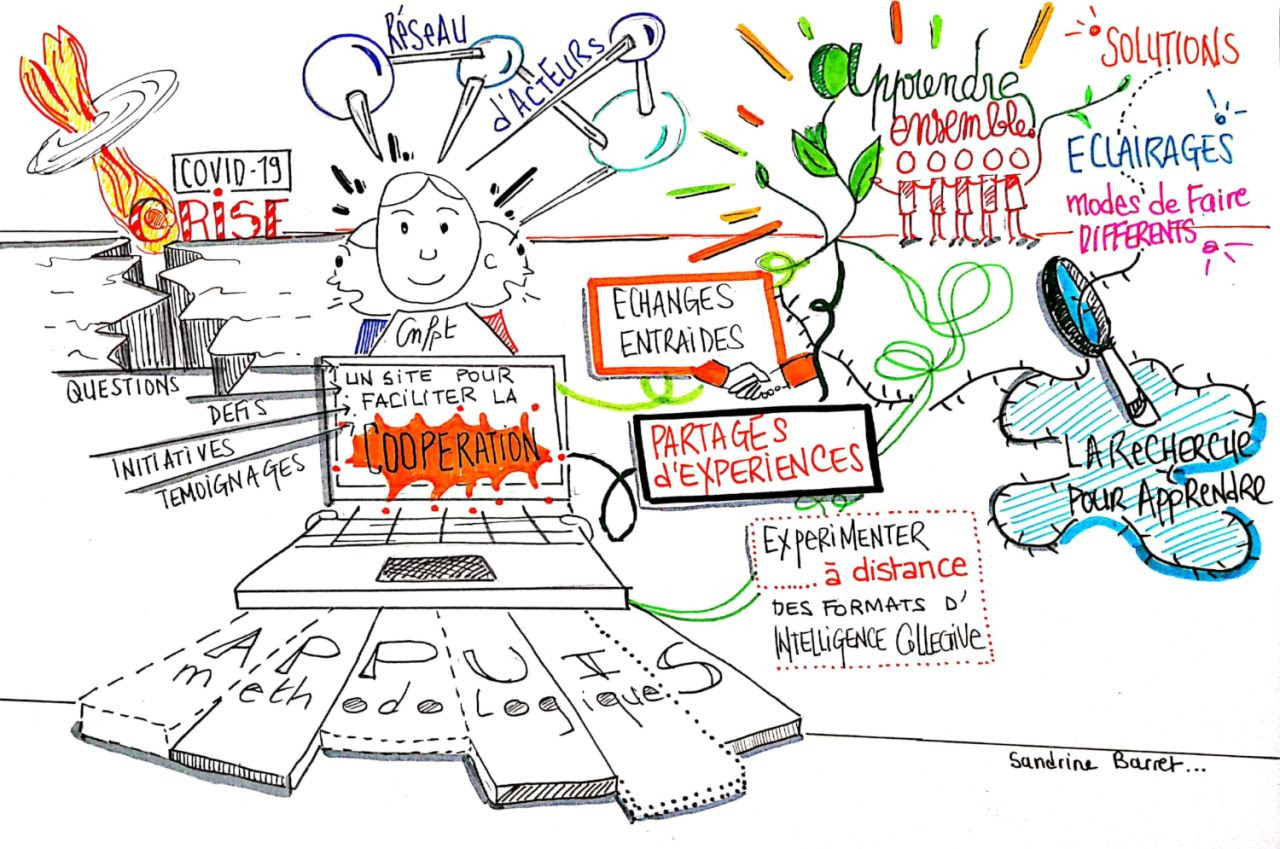 RÉSEAU
d'ACTEURS
apprendre
ensemble
SOLUTIONS
ECLAIRAGES
modes de Faire
DIFFERENTS
COVID-19
CRISE
Cnfpt
ECHANGES
ENTRAIDES
QUESTIONS
DEFIS
INITIATIVES
TEMOIGNAGES
UN SITE POUR
FACILITER LA
COOPERATION
PARTAGES
d'EXPERIENCES
LA ReCHERCHE
POUR APPRENDRE
EXPERIMENTER
à distance
DES FORMATS D'
INTELLIGENCE COLLECTIVE
APPUIS
methodologiques
Sandrine Barret...